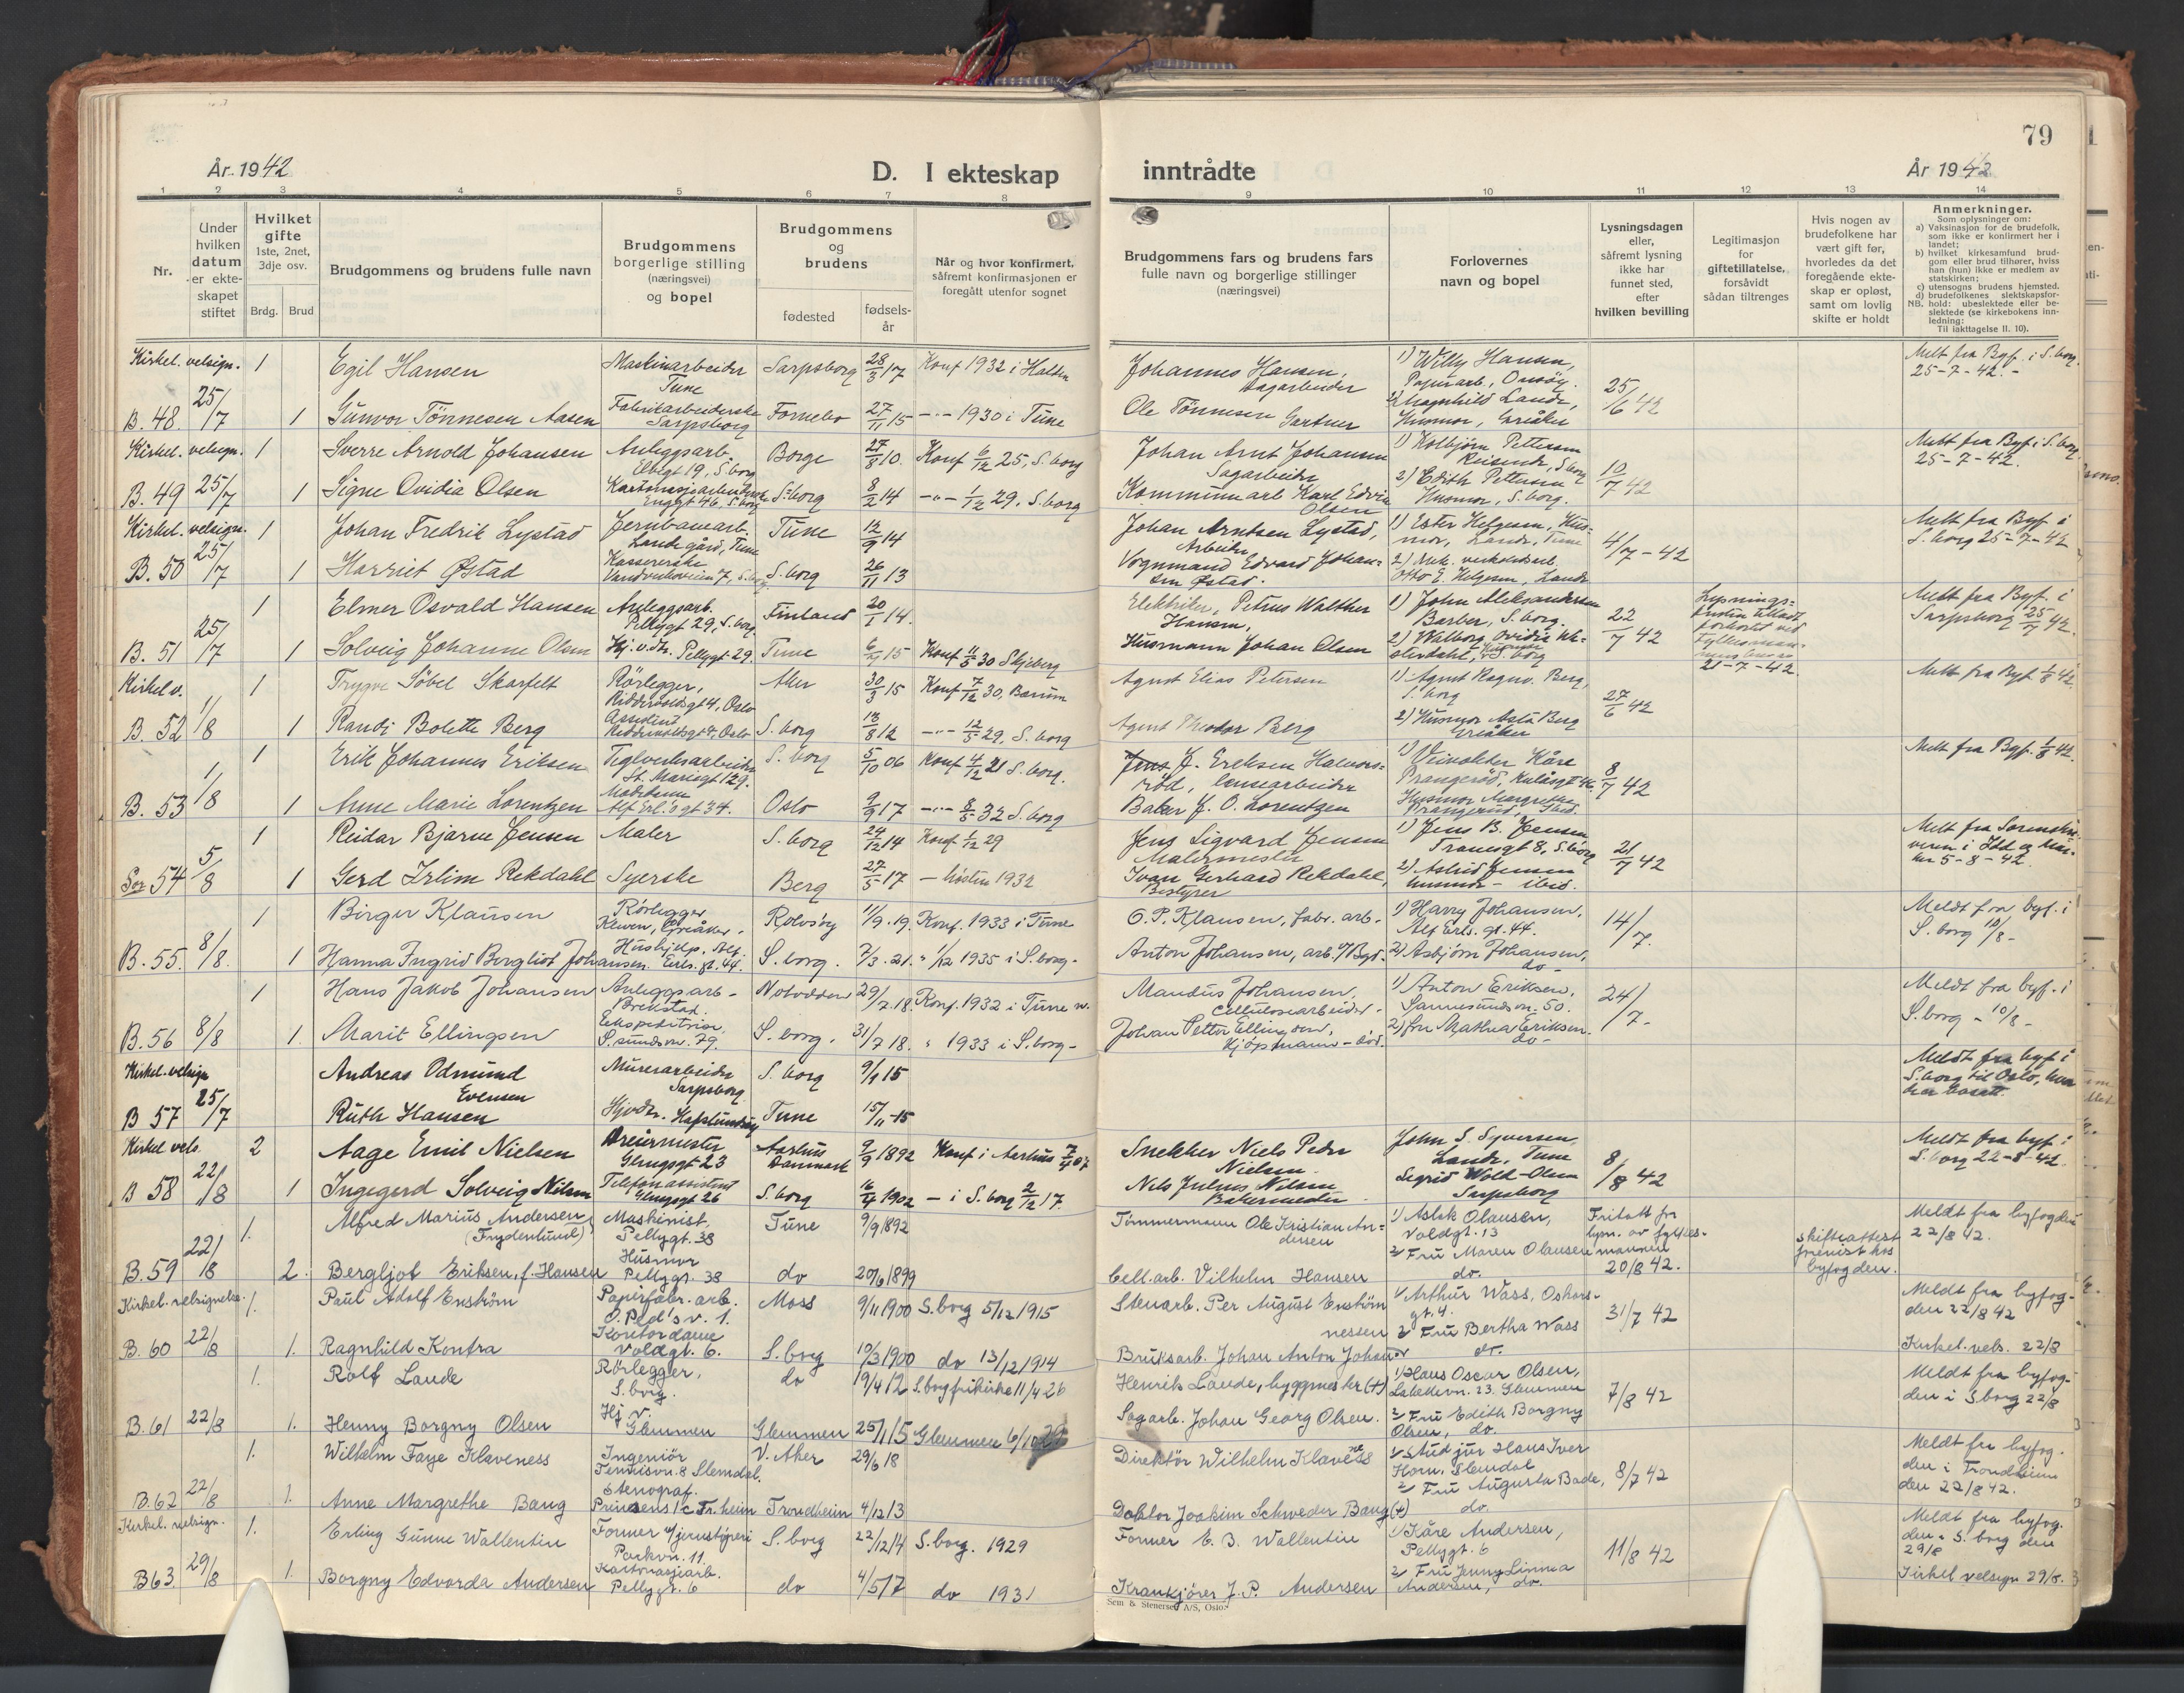 79
År 1942
D. I ekteskap
inntrådte
År 1942
1 2 3 4 5 6 7 8
9 10 11 12 13 14
Nr.
Under hvilken datum er ekteskapet stiftet
Hvilket gifte
1ste, 2net, 3dje osv.
Brdg. Brud
Brudgommens og brudens fulle navn
Brudgommens borgerlige stilling (næringsvei) og bopel
Brudgommens og brudens
fødested
fødselsår
Når og hvor konfirmert, såfremt konfirmasjonen er foregått utenfor sognet
Brudgommens fars og brudens fars fulle navn og borgerlige stillinger (næringsvei)
Forlovernes navn og bopel
Lysningsdagen eller, såfremt lysning ikke har funnet sted, efter hvilken bevilling
Legitimasjon for giftetillatelse, forsåvidt sådan tiltrenges
Hvis nogen av brudefolkene har vært gift før, hvorledes da det foregående ekteskap er opløst, samt om lovlig skifte er holdt
Anmerkninger.
Som oplysninger om:
a) Vaksinasjon for de brudefolk, som ikke er konfirmert her i landet;
b) hvilket kirkesamfund brudgom eller brud tilhører, hviss han (hun) ikke er medlem av statskirken;
c) utensogns brudens hjemsted.
d) brudefolkenes slektskapsforhold: ubeslektede eller beslektede (se kirkebokens innledning:
NB. Til iakttagelse II. 10).
Kirkel. velsign. 1 Egil Hansen Maskinarbeider Tune Sarpsborg 28/3 17 Konf 1932 i Halden Johannes Hansen, Sagarbeider 1) Willy Hansen, Papirarb., Onsøy. 25/6 42 Melt fra Byf. i S.borg 25-7-42.-
B. 48 25/7 1 Gunvor Tönnesen Aasen Fabrikarbeiderske Sarpsborg Fornebo 27/11 15 -"- 1930 i Tune Ole Tönnesen Gartner 2) Magnhild Lande, Husmor, Greåker
Kirkel. velsign. 1 Sverre Arnold Johansen Anleggsarb. Borge 27/8 10. Konf 6/12 25, S.borg Johan Arnt Johansen Sagarbeider 1) Kolbjörn Pettersen Reisende, S.borg 10/7 42 Melt fra Byf. i S.borg 25-7-42.
B. 49 25/7 1 Signe Ovidia Olsen Kartonasjearbeiderske Enggt 46, S.borg S.borg 8/2 14 -"- 1/12 29, S.borg Kommunearb Karl Edvin Olsen 2) Edith Pettersen Husmor, S.borg.
Kirkel. velsign. 1 Johan Fredrik Lystad Jernbanearb. Lande gård, Tune Tune 12/9 14 Johan Arntsen Lystad, Arbeider 1) Ester Helgesen, Husmor, Lande, Tune 4/7-42 Melt fra Byf i S.borg 25-7-42
B. 50 25/7 1 Harriet Østad Kassererske S.borg 26/11 13 Vognmand Edvard Johansen Østad. 2) Otto E. Helgesen, Lande
1 Elmer Osvald Hansen Anleggsarb. Pellygt 29, S.borg Finland 20/1 14. Elektriker, Petrus Walther Hansen, 1) John Aleksandersen Barber, S.borg. 22/7 42 21-7-42. Melt fra Byf. i Sarpsborg 25/7 42.
B. 51 25/7 1 Solveig Johanne Olsen Hj. v.d. Pellygt 29. Tune 6/4 15 Konf 11/5 30 Skjeberg Husmann Johan Olsen 2) Walborg Ovidie S.borg
Kirkel v. 1 Trygve Söbel Skarfelt Rörlegger, Riddervoldsgt 4, Oslo Aker 30/3 15 Konf 7/12 30, Bærum Agent Elias Petersen 1) Agent Ragnv. Berg, S.borg 27/6 42 Melt fra Byf. 1/8 42.
B. 52 1/8 1 Randi Bolette Berg Assistent Riddervoldsgt 4, Oslo S.borg 18/8 12 -"- 12/5 29, S.borg Agent Theodor Berg 2) Husmor Asta Berg Greåker
1 Erik Johannes Eriksen Teglverksarbeider St. Mariegt 129. S.borg 5/10 06 Konf 4/12 21 S.borg. J. Ereksen Halvorsröd, lensearbeider 1) Veivokter Kåre Prangeröd, 8/7 42 Melt fra Byf. 1/8 42.
B. 53 1/8 1 Anne Marie Lorentzen Alf Erl.s gt 34. Oslo 9/9 17 -"- 8/5 32 S.borg Baker J. O. Lorentzen Husmor Margrethe Prangeröd, ibid.
1 Reidar Bjarne Jensen Maler S.borg 24/12 14 Konf 1/12 29 Jens Sigvard Jensen Malermester 1) Jens B. Jensen Tranegt 8, S.borg 21/7 42 Melt fra Sorenskriveren i Idd og Marker 5-8-42.
Sor 54 5/8 1 Gerd Irlim Rekdahl Syerske Berg 27/5 17 - hösten 1932 Ivan Gerhard Rekdahl, Bestyrer 2) Astrid Jensen husmor - ibid.
1 Birger Klausen Rörlegger Kleven, Greåker. Rolvsöy 11/9.19. Konf. 1933 i Tune O.P. Klausen, fabr. arb. 1) Harry Johansen, Alf Erls. gt. 44. 14/7. Meldt fra byf. i S.borg 10/8-
B. 55. 8/8. 1 Hanna Ingrid Bergliot Johansen. Hushjelp, Alf Erls. gt. 44. S.borg. 7/3.21. " 1/12 1935 i S.borg- Anton Johansen, arb. 2) Asbjörn Johansen, do-
1 Hans Jakob Johansen Anleggsarb- Brekstad. Notodden 29/7.18. Konf. 1932 i Tune Mandus Johansen, Cellulosearbeider- 1) Anton Eriksen, Sannesundsvn. 50. 24/7- Meldt fra byf. i S.borg - 10/8-
B. 56 8/8 1. Marit Ellingsen Ekspeditrise. S.sundsvn. 79. S.borg. 31/7 18. " 1933 i S.borg- Johan Petter Ellingsen, Kjöpmann - död. 2) Fru Mathea Eriksen. do-
Kirkel. velsign Andreas Odmund Evensen Murerarbeider Sarpsborg S.borg 9/1 15 Meldt fra byf i S.borg til Oslo, hvor de er bosatt.
B 57 25/7 Ruth Hansen Hjv.dr. Hafslundsøy Tune 15/11-15
Kirkel vels. 2 Aage Emil Nielsen Dreiermester Glengsgt 23 Aarhus Danmark 9/9 1892 Konf i Aarhus 7/4 07 Snekker Niels Peder Nielsen. John S. Syversen Lande, Tune 8/8 42 Meldt fra byf. i S.borg 22-8-42.
B 58 22/8 1 Ingegerd Solveig Nilsen Telefonassistent Glengsgt 26 S.borg 16/4 1902 - i S.borg 2/12 17. Nils Julius Nilsen Bakermester Sigrid Wold-Olsen Sarpsborg
1. Alfred Marius Andersen (Frydenlund) Maskinist, Pellygt. 38 Tune 9/9 1892 Tömmermann Ole Kristian Andersen 1) Aslak Olausen, Voldgt. 13 Fritatt for lysn. av fylkesmannen 20/8 42. Skifteattest fremvist hos byfogden. Meldt fra byfogden 22/8 42.
B. 59 22/8 2. Bergljot Eriksen, f. Hansen Husmor Pellygt. 38 do 20/6 1899 Cell.arb. Vilhelm Hansen 2 Fru Maren Olausen do.
Kirkel. velsignelse. 1. Paul Adolf Enström Papirfabr. arb. O. Pld's v. 1. Moss 9/11 1900 S.borg 5/12 1915 Stenarb. Per August Enström 1/ Arthur Wass, Oskarsgt. 4. 31/7 42 Meldt fra byfogden 22/8 42
B. 60 22/8 1. Ragnhild Kontra Kontordame Voldgt. 6. S.borg 10/3 1900 do 13/12 1914 Bruksarb. Johan Anton Johannessen 2 Fru Bertha Wass do. Kirkel. vels. 22/8
1. Rolf Lande Rörlegger, S.borg. do 19/4 12 S.borg frikirke 11/4 26 Henrik Lande, byggmester (+) 1) Hans Oscar Olsen, Glemmen 7/8 42 Meldt fra byfogden i S.borg 22/8
B. 61 22/8 1. Henny Borgny Olsen Hj. v. Glemmen Glemmen 25/1 15 Glemmen 6/10 29 Sagarb. Johan Georg Olsen. 2 Fru Edith Borgny Olsen, do.
1. Wilhelm Faye Klaveness Ingeniör Tennisvn. 8 Slemdal. V. Aker 29/6 18 Direktör Wilhelm Klaveness 1/ Stud jur Hans Iver Horn, Slemdal 8/7 42 Meldt fra byfogden i Trondheim den 22/8 42.
B. 62 22/8 1. Anne Margrethe Bang Stenograf. Prinsens 1c Tr.heim Trondheim 4/12 13 Doktor Joakim Schweder Bang (+) 2 Fru Augusta Bade, do.
Kirkel. velsign. 1. Erling Gunne Wallentin Former v/ jernstöperi Parkvn. 11. S.borg 22/12 14 S.borg. 1929 Former E. B. Wallentin 1) Kåre Andersen, Pellygt. 6 11/8 42 Meldt fra byfogden i S.borg den 29/8
B 63 29/8 1. Borgny Edvarda Andersen Kartonasjearb. Pellygt. 6 do 4/5 17 do 1931 Krankjörer J. P. Andersen 2 Fru Jenny Linnea Andersen, do. Kirkel velsign 29/8.
Sem & Stenersen A/S, Oslo.